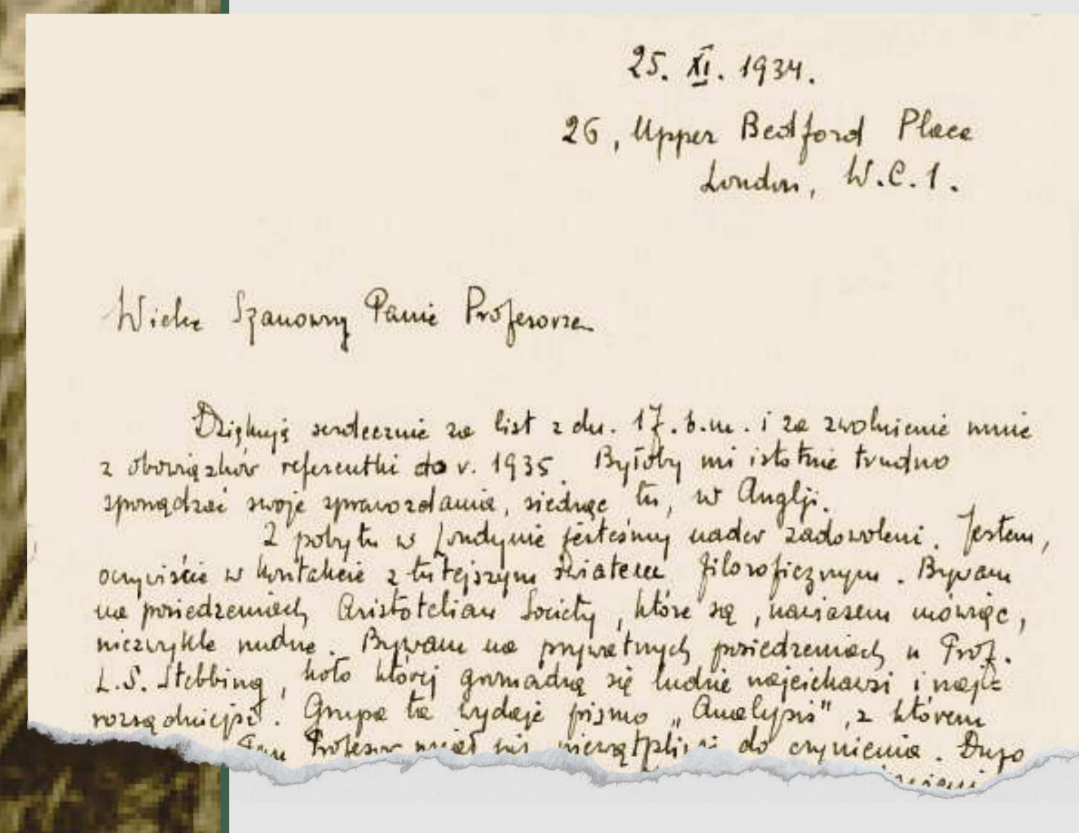 25. XI. 1934.
26, Upper Bedford Place
London, W.C.1.
Wielce Szanowny Panie Profesorze
Dziękuję serdecznie za list z dn. 17.b.m. i za zwolnienie mnie
z obowiązków referentki do r. 1935. Byłoby mi istotnie trudno
sporządzać swoje sprawozdania, siedząc tu, w Anglji.
Z pobytu w Londynie jesteśmy nader zadowoleni. Jestem,
oczywiście w kontakcie z tutejszym światem filozoficznym. Bywam
na posiedzeniach Aristotelian Society, które są, nawiasem mówiąc,
niezwykle nudne. Bywam na prywatnych posiedzeniach u Prof.
L.S. Stebbing, koło której gromadzą się ludzie najciekawsi i naj=
rozsądniejsi. Grupa ta wydaje pismo „Analysis", z którem
Pan Profesor miał już niewątpliwie do czynienia. Dużo